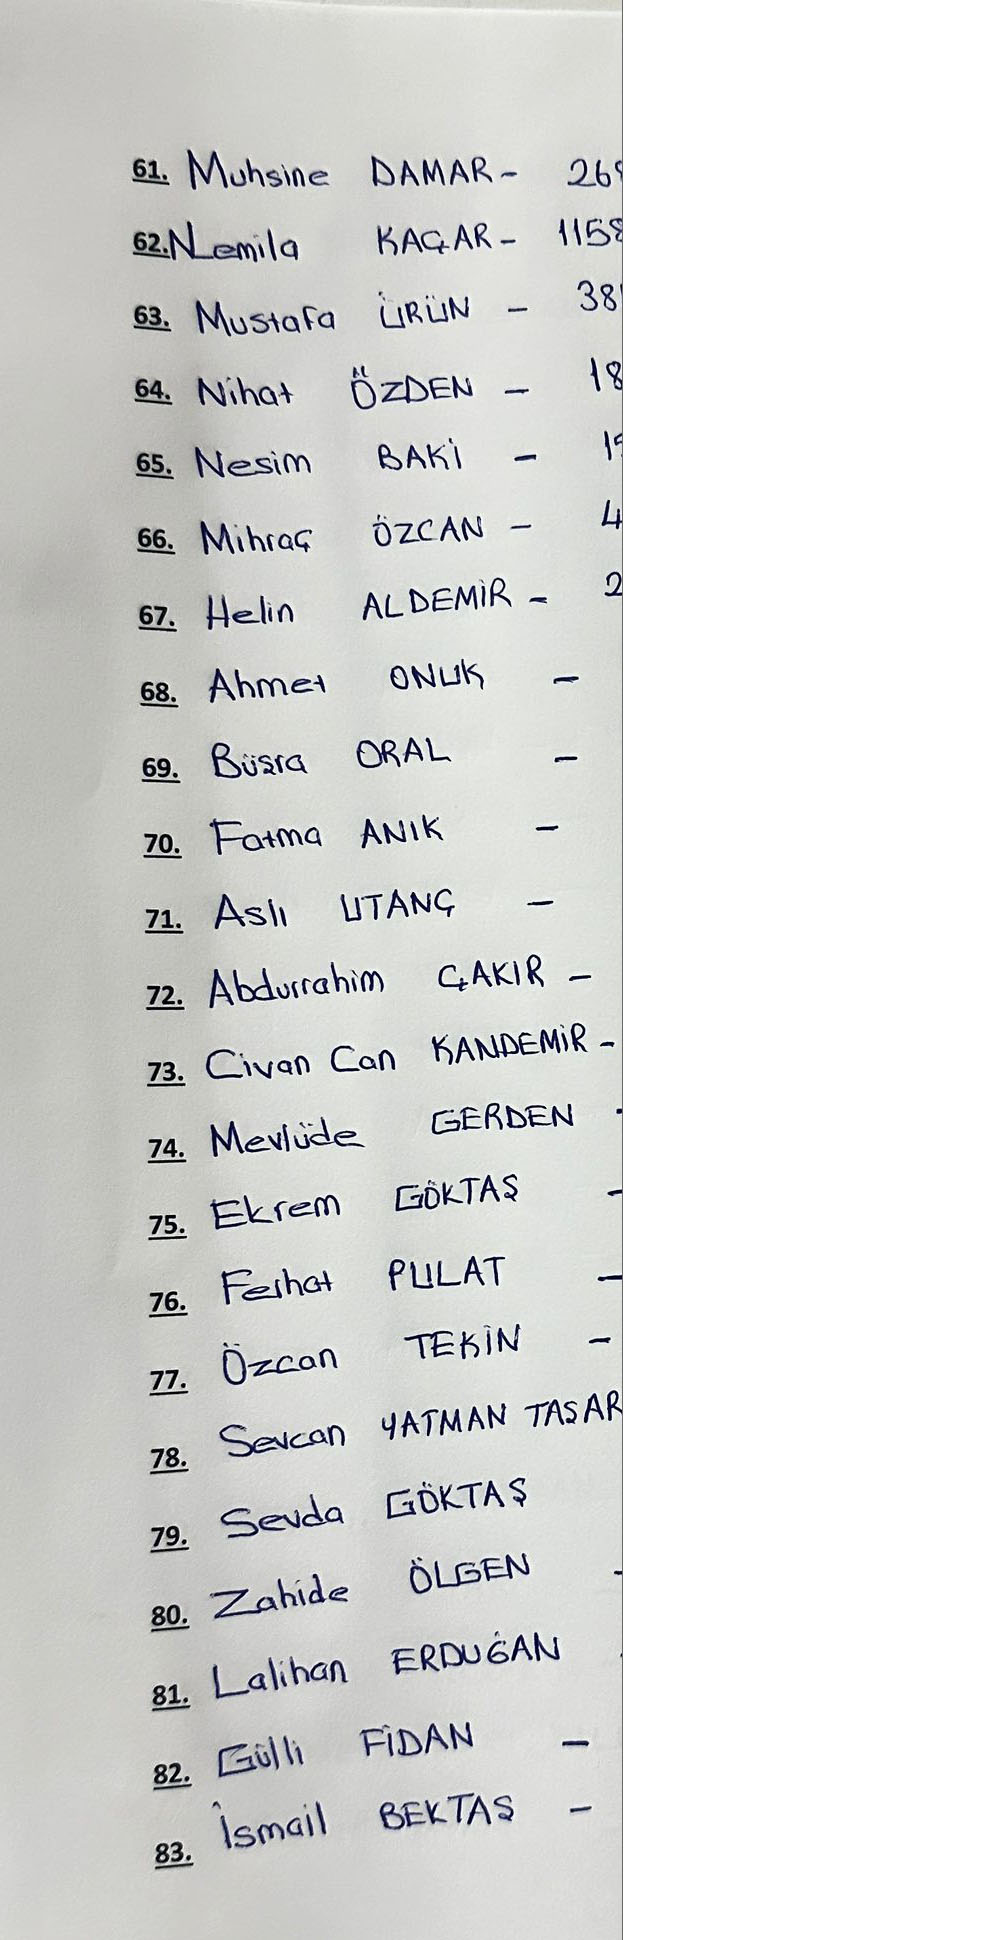 61. Muhsine DAMAR - 268
62. Nemila KAÇAR - 1158
63. Mustafa ÜRÜN - 38
64. Nihat ÖZDEN - 18
65. Nesim BAKİ - 15
66. Mihraç ÖZCAN - 4
67. Helin ALDEMİR - 2
68. Ahmet ONUK -
69. Büşra ORAL -
70. Fatma ANIK -
71. Aslı UTANÇ -
72. Abdurrahim ÇAKIR -
73. Civan Can KANDEMİR -
74. Mevlüde GERDEN -
75. Ekrem GÖKTAŞ -
76. Ferhat PULAT -
77. Özcan TEKİN -
78. Sevcan YATMAN TAŞAR
79. Sevda GÖKTAŞ
80. Zahide ÖLGEN -
81. Lalihan ERDUĞAN -
82. Gülli FİDAN -
83. İsmail BEKTAŞ -